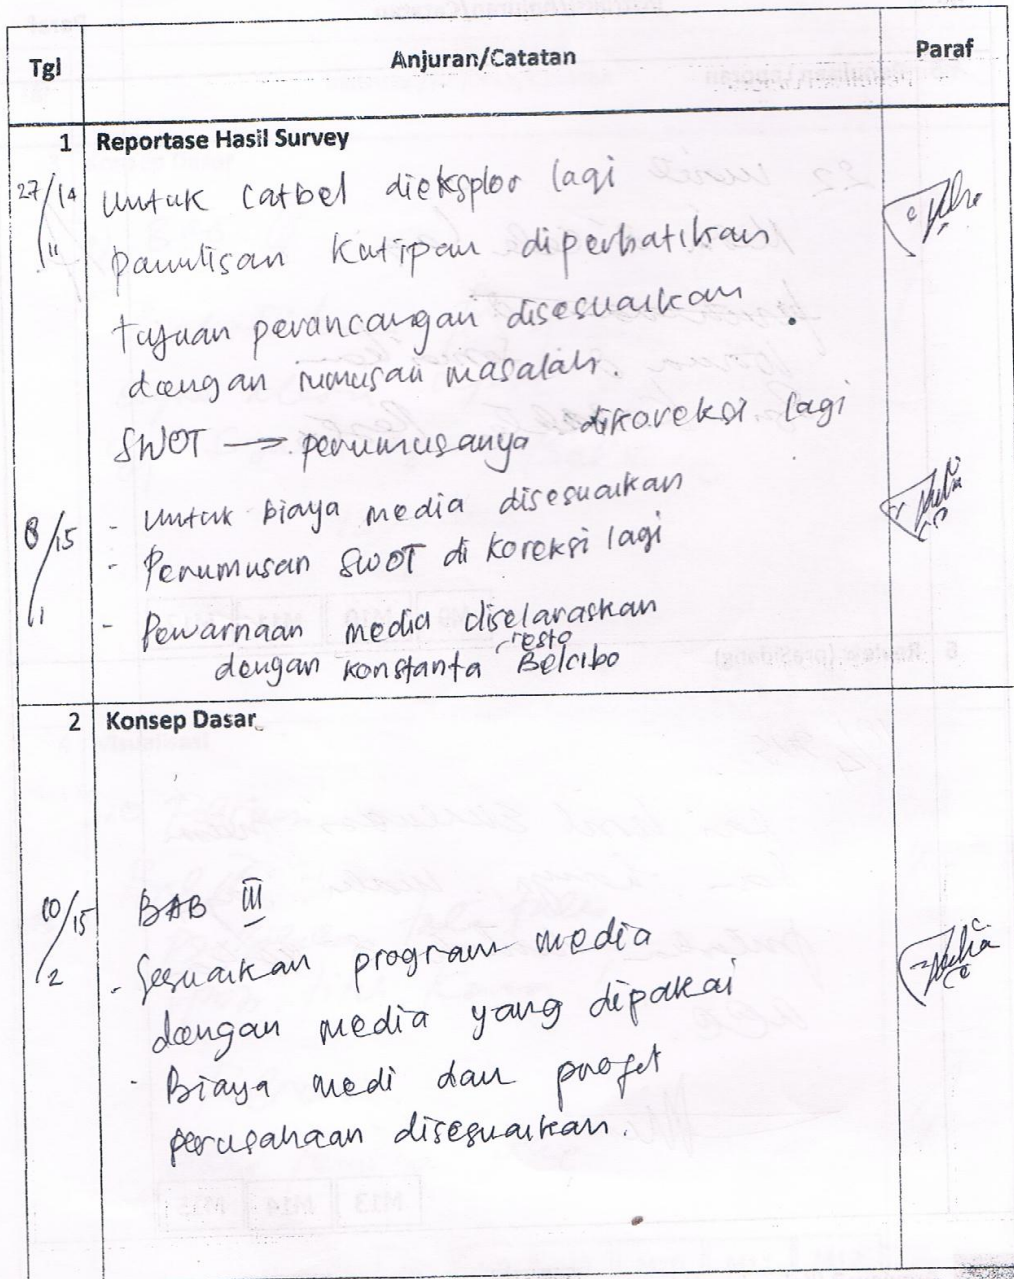 Tgl Anjuran/Catatan Paraf
1 Reportase Hasil Survey
27/14
11
Untuk Catbel dieksplor lagi
Panulisan Kutipan diperhatikan
tujuan perancangan disesuaikan
dengan rumusan masalah.
SWOT → perumusanya dikoreksi lagi
8/15
1
- Untuk Biaya media disesuaikan
- Perumusan SWOT di koreksi lagi
- Pewarnaan media diselaraskan
resto
dengan konstanta Belcibo
2 Konsep Dasar
10/15
2
BAB III
- Sesuaikan program media
dengan media yang dipakai
- Biaya medi dan
perusahaan disesuaikan.